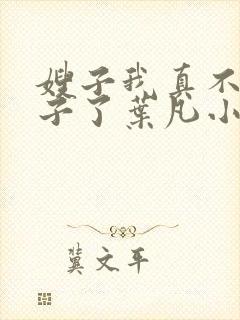 嫂子我真不
子了葉凡小
冀文平